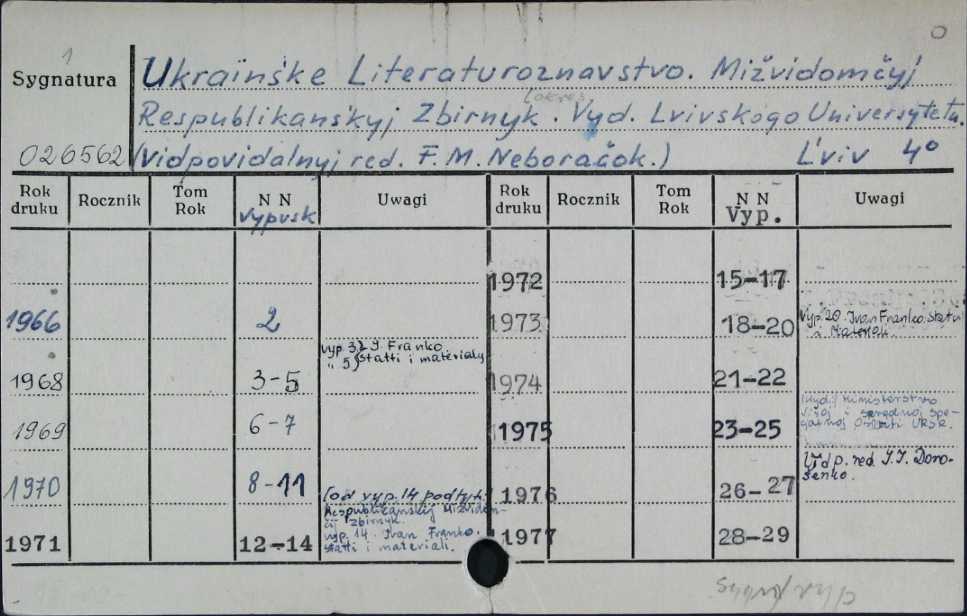 Sygnatura
1
026562
Ukraïnśke Literaturoznavstvo. Mižvidomčyj
Respublikanśkyj Zbirnyk. Vyd. Lvivskogo Universytetu.
(vidpovidalnyj red. F. M. Neboračok.) L'viv 4°
Rok druku Rocznik Tom Rok N N vypusk Uwagi Rok druku Rocznik Tom Rok N N Vyp. Uwagi
1972 15-17
1966 2 1973 18-20 Vyp. 20. Ivan Franko. Statti i Materiali.
1968 3-5 vyp 3. I. Franko. " 5) Statti i materialy 1974 21-22
1969 6-7 1975 23-25 (Vyd:) Ministerstvo Višoj i serednoj spe-
1970 8-11 (od vyp. 14 podtyt. 1976 26-27 Vidp. red. I. I. Doro-šenko.
1971 12-14 Respublikanskij Mižvidom-čij zbirnyk. vyp. 14. Ivan Franko. statti i materiali. 1977 28-29